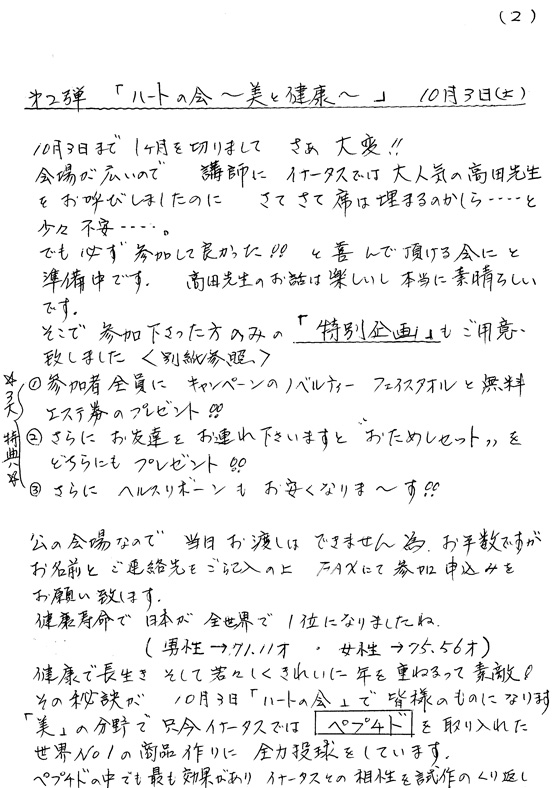 (2)
第2弾 「ハートの会 ～美と健康～」 10月3日(土)
10月3日まで 1ヶ月を切りまして さぁ 大変!!
会場が広いので 講師に イータスでは 大人気の高田先生
を お呼びしましたのに さて さて 席は埋まるのかしら‥‥と
少々 不安‥‥。
でも 必ず 参加して良かった!! と喜んで頂ける会にと
準備中です. 高田先生のお話は楽しいし 本当に素晴らしい
です.
そこで 参加下さった方のみの 「特別企画」もご用意
致しました <別紙参照>
☆3大特典☆
① 参加者全員に キャンペーンのノベルティー フェイスタオルと無料
エステ券のプレゼント!!
② さらに お友達を お連れ下さいますと "おためしセット" を
どちらにも プレゼント!!
③ さらに ヘルスリボーンも お安くなりま～す!!
公の会場なので 当日お渡しは できません為. お手数ですが
お名前と ご連絡先をご記入の上 FAXにて参加申込みを
お願い致します.
健康寿命で 日本が 全世界で 1位になりましたね.
(男性→71.11才 ・ 女性→75.56才)
健康で長生き そして若々しくきれいに 年を重ねるって素敵!
その秘訣が 10月3日「ハートの会」で 皆様のものになります
「美」の分野で 只今イータスでは ペプチド を 取り入れた
世界No1の商品作りに 全力投球をしています.
ペプチドの中でも最も効果があり イータスとの 相性を試作のくり返し